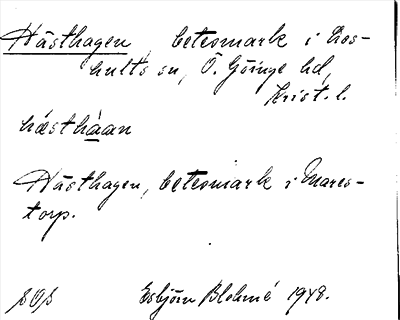 Hästhagen, betesmark i Los-
hults sn, Ö. Göinge hd,
Krist. l.
hästhàan
Hästhagen, betesmark i Mares-
torp.
Esbjörn Blohmé 1948.